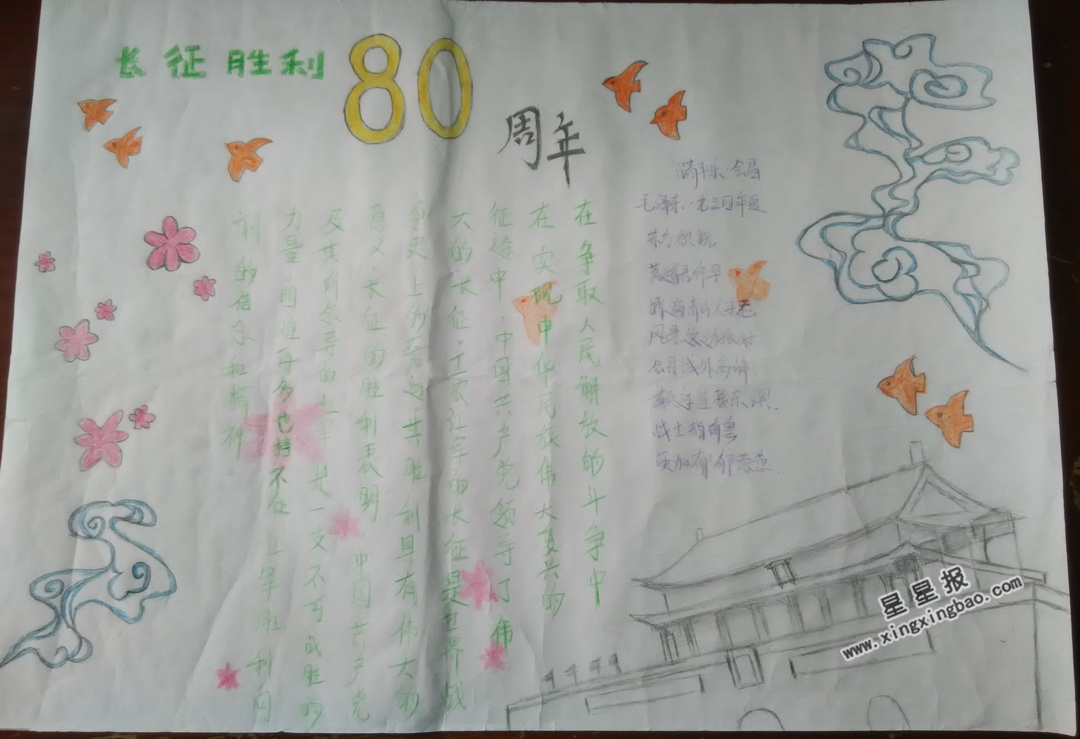 长征胜利80周年
清平乐 会昌
毛泽东.一九三四年夏
东方欲晓
莫道君行早
踏遍青山人未老
风景这边独好
会昌城外高峰
颠连直接东溟.
战士指粤
更加郁郁葱葱.
在争取人民解放的斗争中
在实现中华民族伟大复兴的
征途中.中国共产党领导了伟
大的长征.工农红军的长征是世界战
争史上的奇迹.其胜利具有伟大的
意义.长征的胜利表明.中国共产党
及其所领导的红军.是一支不可战胜的
力量.困难再多也挡不住胜利向
前的信念和精神.
星星报
www.xingxingbao.com